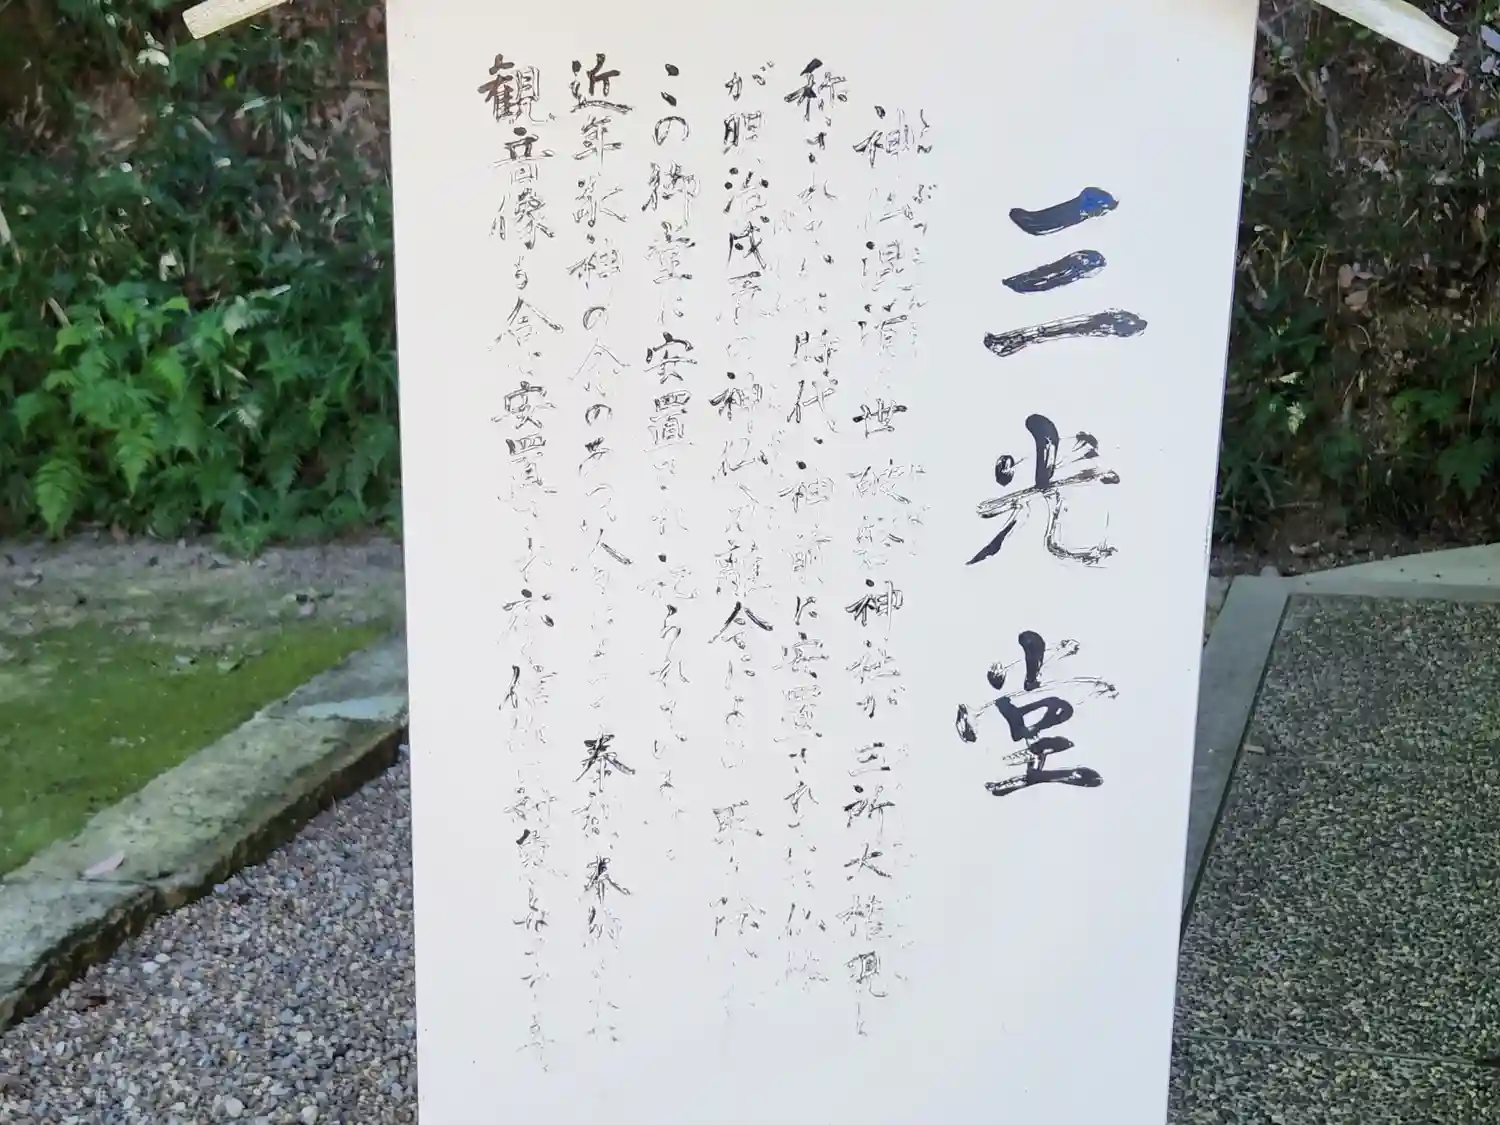 三光堂
神仏混淆の世 破磐神社が三所大権現と
称されていた時代、神前に安置されていた仏像
が明治戌辰の神仏分離令により取り除かれ
この御堂に安置され、祀られています。
近年敬神の念のあつい人々によって奉献、奉納された
観音像も合せ安置せられ、信仰